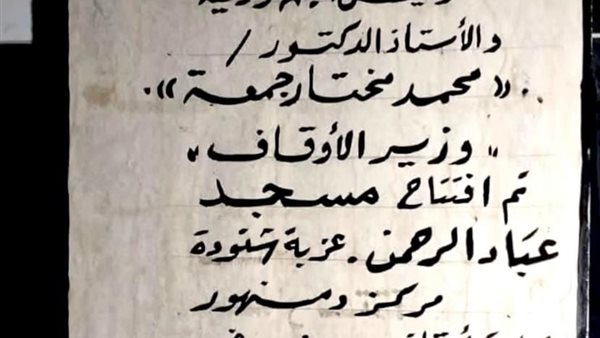 والأستاذ الدكتور /
« محمد مختار جمعة ».
" وزير الأوقاف "
تم افتتاح مسجد
عباد الرحمن. عزبة شنودة
مركز دمنهور